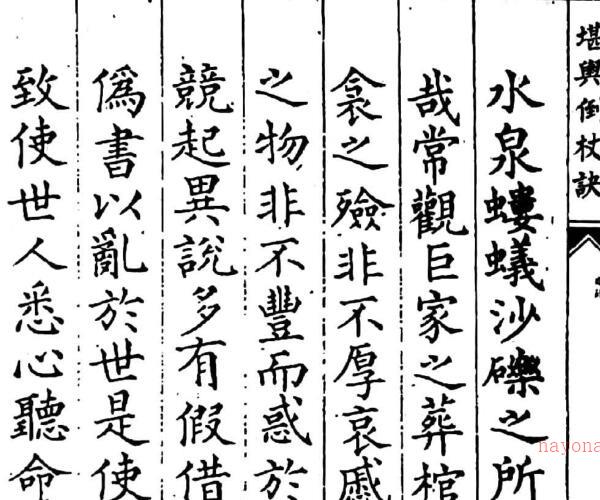 堪輿倒杖訣
水泉螻蟻沙礫之所
哉常觀巨家之葬棺
衾之殮非不厚哀戚
之物非不豐而惑於
競起異說多有假借
偽書以亂於世是使
致使世人悉心聽命
nayona